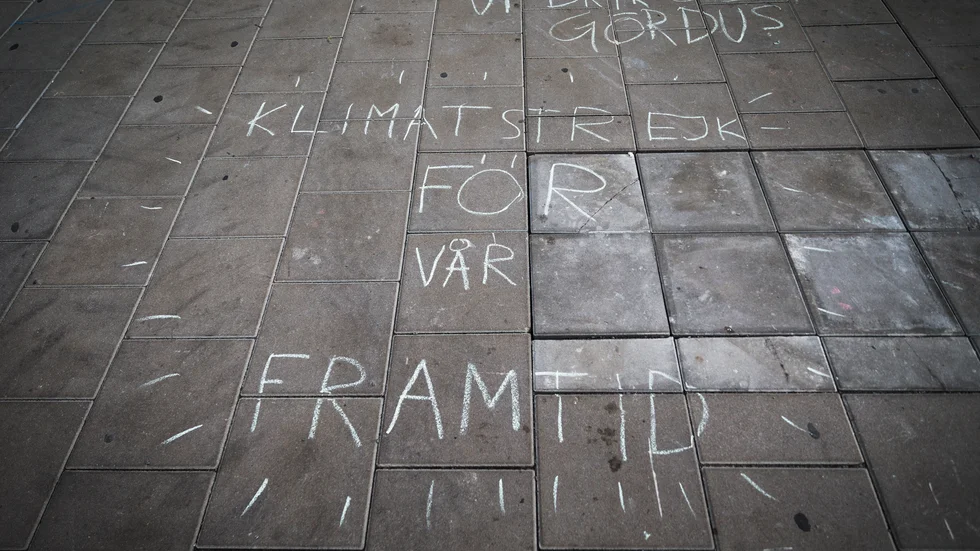 VI
GÖR DU?
KLIMATSTREJK
FÖR
VÅR
FRAMTID